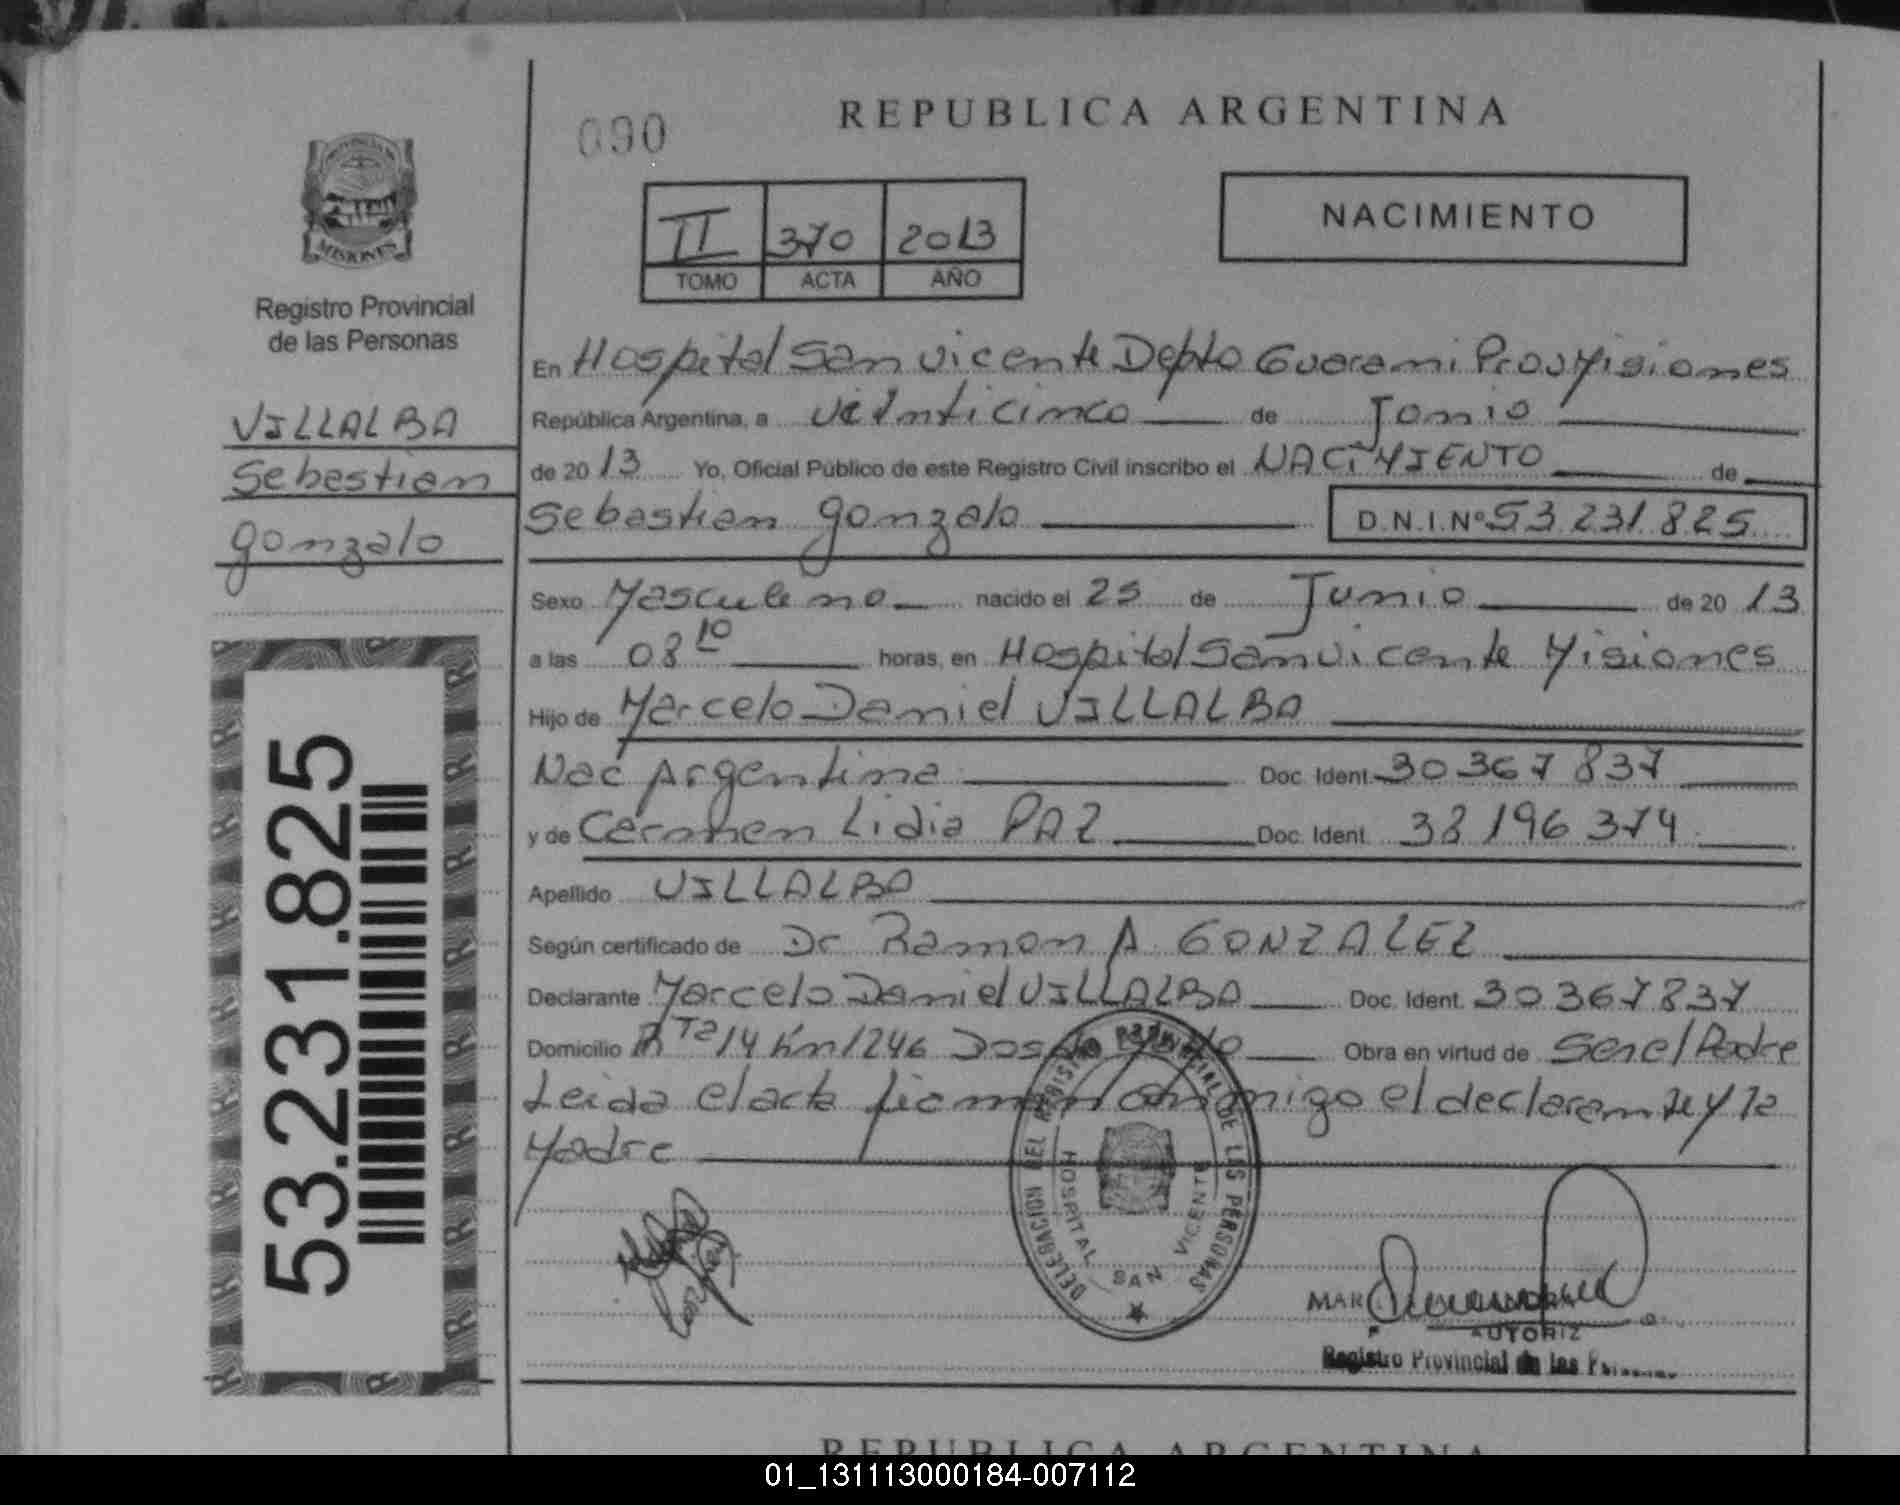 090
REPUBLICA ARGENTINA
II 370 2013
TOMO ACTA AÑO
NACIMIENTO
MISIONES
Registro Provincial
de las Personas
VILLALBA
Sebastian
gonzalo
53.231.825
En Hospital San vicente Depto Guarani Prov Misiones
República Argentina, a veinticinco de Junio
de 20 13 Yo, Oficial Público de este Registro Civil inscribo el NACIMIENTO de
Sebastian gonzalo D.N.I.Nº 53 231 825
Sexo Masculino nacido el 25 de Junio de 20 13
a las 08 10 horas, en Hospital San vicente Misiones
Hijo de Marcelo Daniel VILLALBA
Nac Argentina Doc. Ident. 30 367 837
y de Carmen Lidia PAZ Doc. Ident. 38 196 374
Apellido VILLALBA
Según certificado de Dr Ramon A. GONZALEZ
Declarante Marcelo Daniel VILLALBA Doc. Ident. 30 367 837
Domicilio Rta 14 Km 1246 Dos de Mayo Obra en virtud de Ser el Padre
Leida el acta firman conmigo el declarante y la
Madre
DELEGACION DEL REGISTRO PROVINCIAL DE LAS PERSONAS
HOSPITAL SAN VICENTE
MAR
AUTORIZ
Registro Provincial de las
REPUBLICA ARGENTINA
01_131113000184-007112